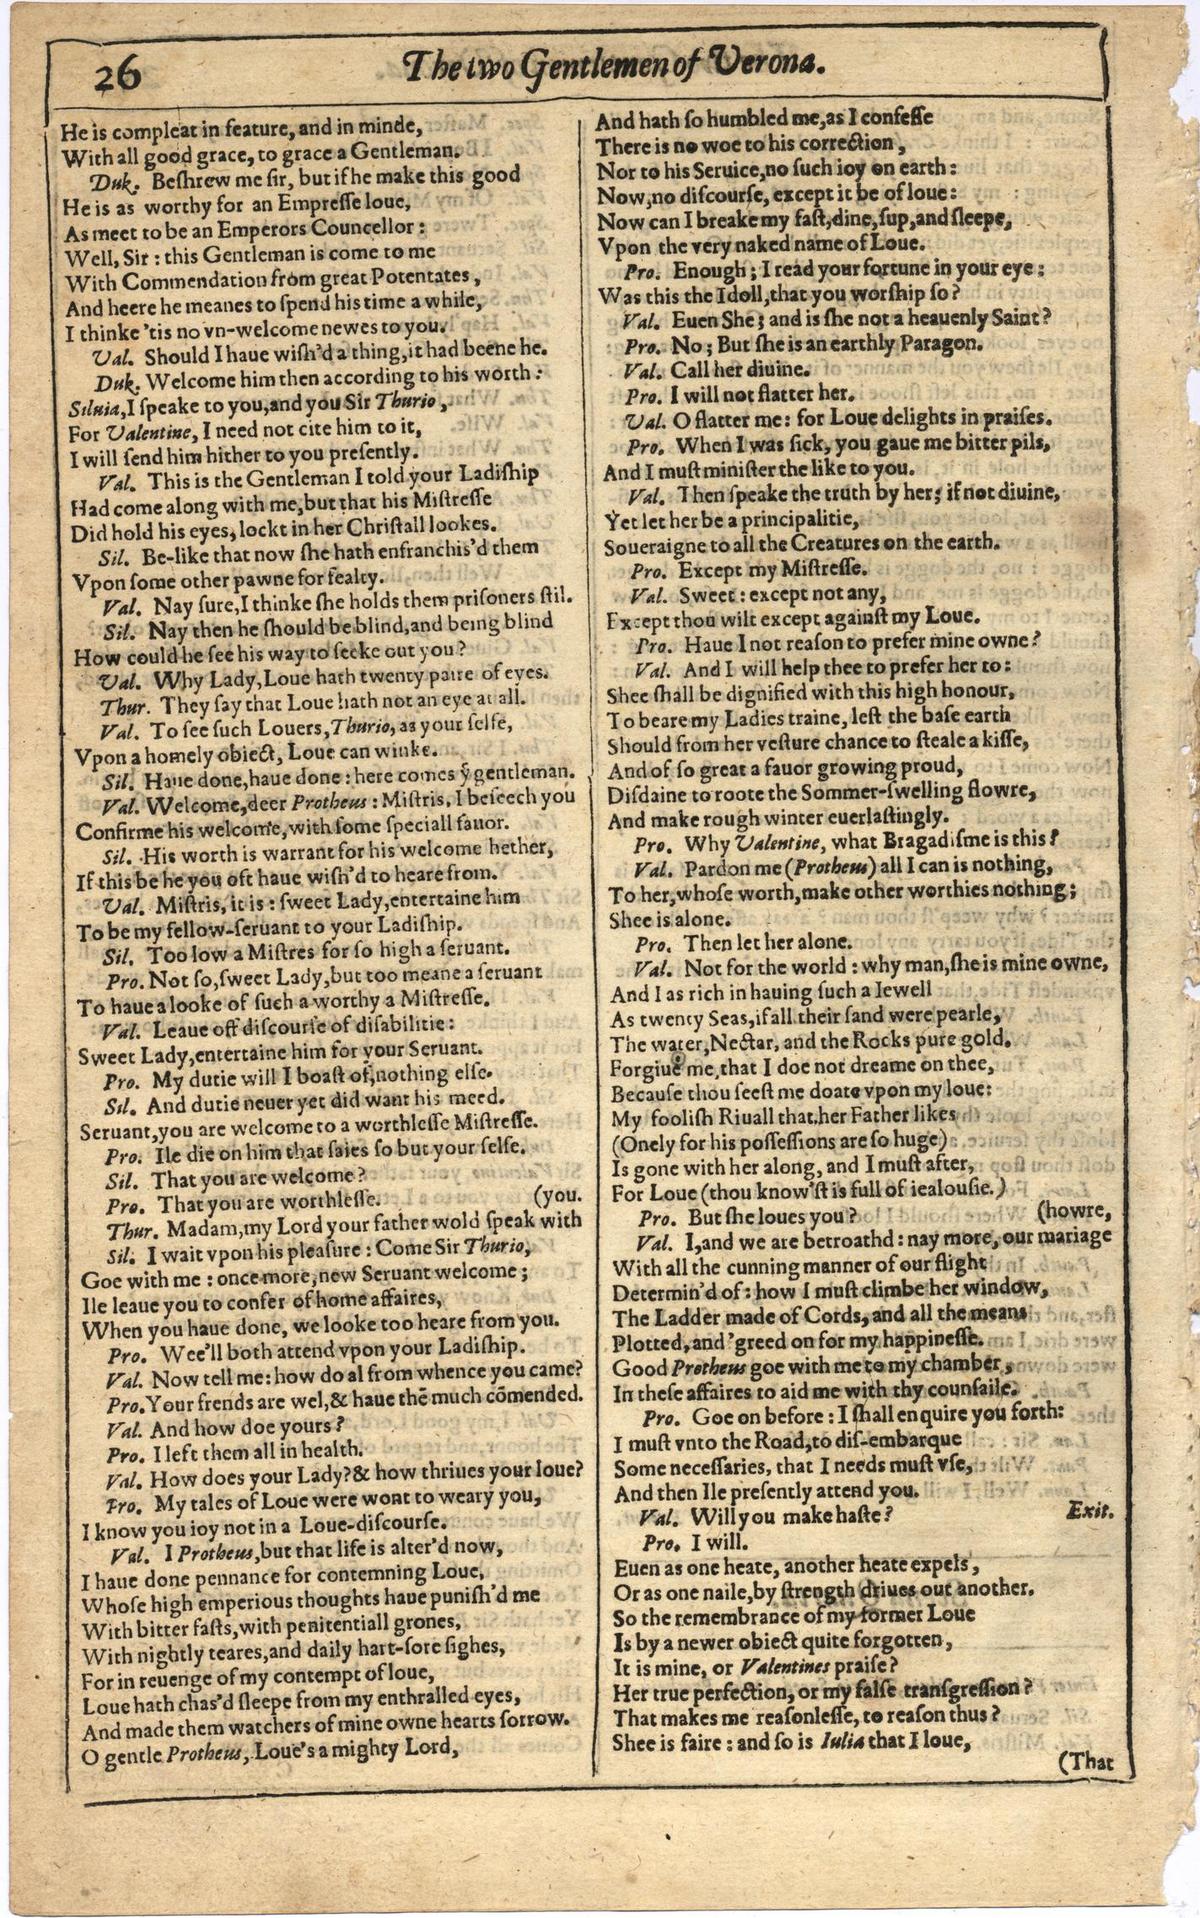 26
The two Gentlemen of Verona.
He is compleat in feature, and in minde,
With all good grace, to grace a Gentleman.
Duk. Beſhrew me ſir, but if he make this good
He is as worthy for an Empreſſe loue,
As meet to be an Emperors Councellor:
Well, Sir: this Gentleman is come to me
With Commendation from great Potentates,
And heere he meanes to ſpend his time a while,
I thinke 'tis no vn-welcome newes to you.
Val. Should I haue wiſh'd a thing, it had beene he.
Duk. Welcome him then according to his worth:
Siluia, I ſpeake to you, and you Sir Thurio,
For Valentine, I need not cite him to it,
I will ſend him hither to you preſently.
Val. This is the Gentleman I told your Ladiſhip
Had come along with me, but that his Miſtreſſe
Did hold his eyes, lockt in her Chriſtall lookes.
Sil. Be-like that now ſhe hath enfranchis'd them
Vpon ſome other pawne for fealty.
Val. Nay ſure, I thinke ſhe holds them priſoners ſtil.
Sil. Nay then he ſhould be blind, and being blind
How could he ſee his way to ſeeke out you?
Val. Why Lady, Loue hath twenty paire of eyes.
Thur. They ſay that Loue hath not an eye at all.
Val. To ſee ſuch Louers, Thurio, as your ſelfe,
Vpon a homely obiect, Loue can winke.
Sil. Haue done, haue done: here comes yͤ gentleman.
Val. Welcome, deer Protheus: Miſtris, I beſeech you
Confirme his welcome, with ſome ſpeciall fauor.
Sil. His worth is warrant for his welcome hether,
If this be he you oft haue wiſh'd to heare from.
Val. Miſtris, it is: ſweet Lady, entertaine him
To be my fellow-ſeruant to your Ladiſhip.
Sil. Too low a Miſtres for ſo high a ſeruant.
Pro. Not ſo, ſweet Lady, but too meane a ſeruant
To haue a looke of ſuch a worthy a Miſtreſſe.
Val. Leaue off diſcourſe of diſabilitie:
Sweet Lady, entertaine him for your Seruant.
Pro. My dutie will I boaſt of, nothing elſe.
Sil. And dutie neuer yet did want his meed.
Seruant, you are welcome to a worthleſſe Miſtreſſe.
Pro. Ile die on him that ſaies ſo but your ſelfe.
Sil. That you are welcome?
Pro. That you are worthleſſe. (you.
Thur. Madam, my Lord your father wold ſpeak with
Sil. I wait vpon his pleaſure: Come Sir Thurio,
Goe with me: once more, new Seruant welcome;
Ile leaue you to confer of home affaires,
When you haue done, we looke too heare from you.
Pro. Wee'll both attend vpon your Ladiſhip.
Val. Now tell me: how do al from whence you came?
Pro. Your frends are wel, & haue thē much cōmended.
Val. And how doe yours?
Pro. I left them all in health.
Val. How does your Lady? & how thriues your loue?
Pro. My tales of Loue were wont to weary you,
I know you ioy not in a Loue-diſcourſe.
Val. I Protheus, but that life is alter'd now,
I haue done pennance for contemning Loue,
Whoſe high emperious thoughts haue puniſh'd me
With bitter faſts, with penitentiall grones,
With nightly teares, and daily hart-ſore ſighes,
For in reuenge of my contempt of loue,
Loue hath chas'd ſleepe from my enthralled eyes,
And made them watchers of mine owne hearts ſorrow.
O gentle Protheus, Loue's a mighty Lord,
And hath ſo humbled me, as I confeſſe
There is no woe to his correction,
Nor to his Seruice, no ſuch ioy on earth:
Now, no diſcourſe, except it be of loue:
Now can I breake my faſt, dine, ſup, and ſleepe,
Vpon the very naked name of Loue.
Pro. Enough; I read your fortune in your eye:
Was this the Idoll, that you worſhip ſo?
Val. Euen She; and is ſhe not a heauenly Saint?
Pro. No; But ſhe is an earthly Paragon.
Val. Call her diuine.
Pro. I will not flatter her.
Val. O flatter me: for Loue delights in praiſes.
Pro. When I was ſick, you gaue me bitter pils,
And I muſt miniſter the like to you.
Val. Then ſpeake the truth by her; if not diuine,
Yet let her be a principalitie,
Soueraigne to all the Creatures on the earth.
Pro. Except my Miſtreſſe.
Val. Sweet: except not any,
Except thou wilt except againſt my Loue.
Pro. Haue I not reaſon to prefer mine owne?
Val. And I will help thee to prefer her to:
Shee ſhall be dignified with this high honour,
To beare my Ladies traine, leſt the baſe earth
Should from her veſture chance to ſteale a kiſſe,
And of ſo great a fauor growing proud,
Diſdaine to roote the Sommer-ſwelling flowre,
And make rough winter euerlaſtingly.
Pro. Why Valentine, what Bragadiſme is this?
Val. Pardon me (Protheus) all I can is nothing,
To her, whoſe worth, make other worthies nothing;
Shee is alone.
Pro. Then let her alone.
Val. Not for the world: why man, ſhe is mine owne,
And I as rich in hauing ſuch a Iewell
As twenty Seas, if all their ſand were pearle,
The water, Nectar, and the Rocks pure gold.
Forgiue me, that I doe not dreame on thee,
Becauſe thou ſeeſt me doate vpon my loue:
My fooliſh Riuall that her Father likes
(Onely for his poſſeſſions are ſo huge)
Is gone with her along, and I muſt after,
For Loue (thou know'ſt is full of iealouſie.)
Pro. But ſhe loues you? (howre,
Val. I, and we are betroathd: nay more, our mariage
With all the cunning manner of our flight
Determin'd of: how I muſt climbe her window,
The Ladder made of Cords, and all the means
Plotted, and 'greed on for my happineſſe.
Good Protheus goe with me to my chamber,
In theſe affaires to aid me with thy counſaile.
Pro. Goe on before: I ſhall enquire you forth:
I muſt vnto the Road, to diſ-embarque
Some neceſſaries, that I needs muſt vſe,
And then Ile preſently attend you.
Val. Will you make haſte? Exit.
Pro. I will.
Euen as one heate, another heate expels,
Or as one naile, by ſtrength driues out another.
So the remembrance of my former Loue
Is by a newer obiect quite forgotten,
It is mine, or Valentines praiſe?
Her true perfection, or my falſe tranſgreſſion?
That makes me reaſonleſſe, to reaſon thus?
Shee is faire: and ſo is Iulia that I loue,
(That